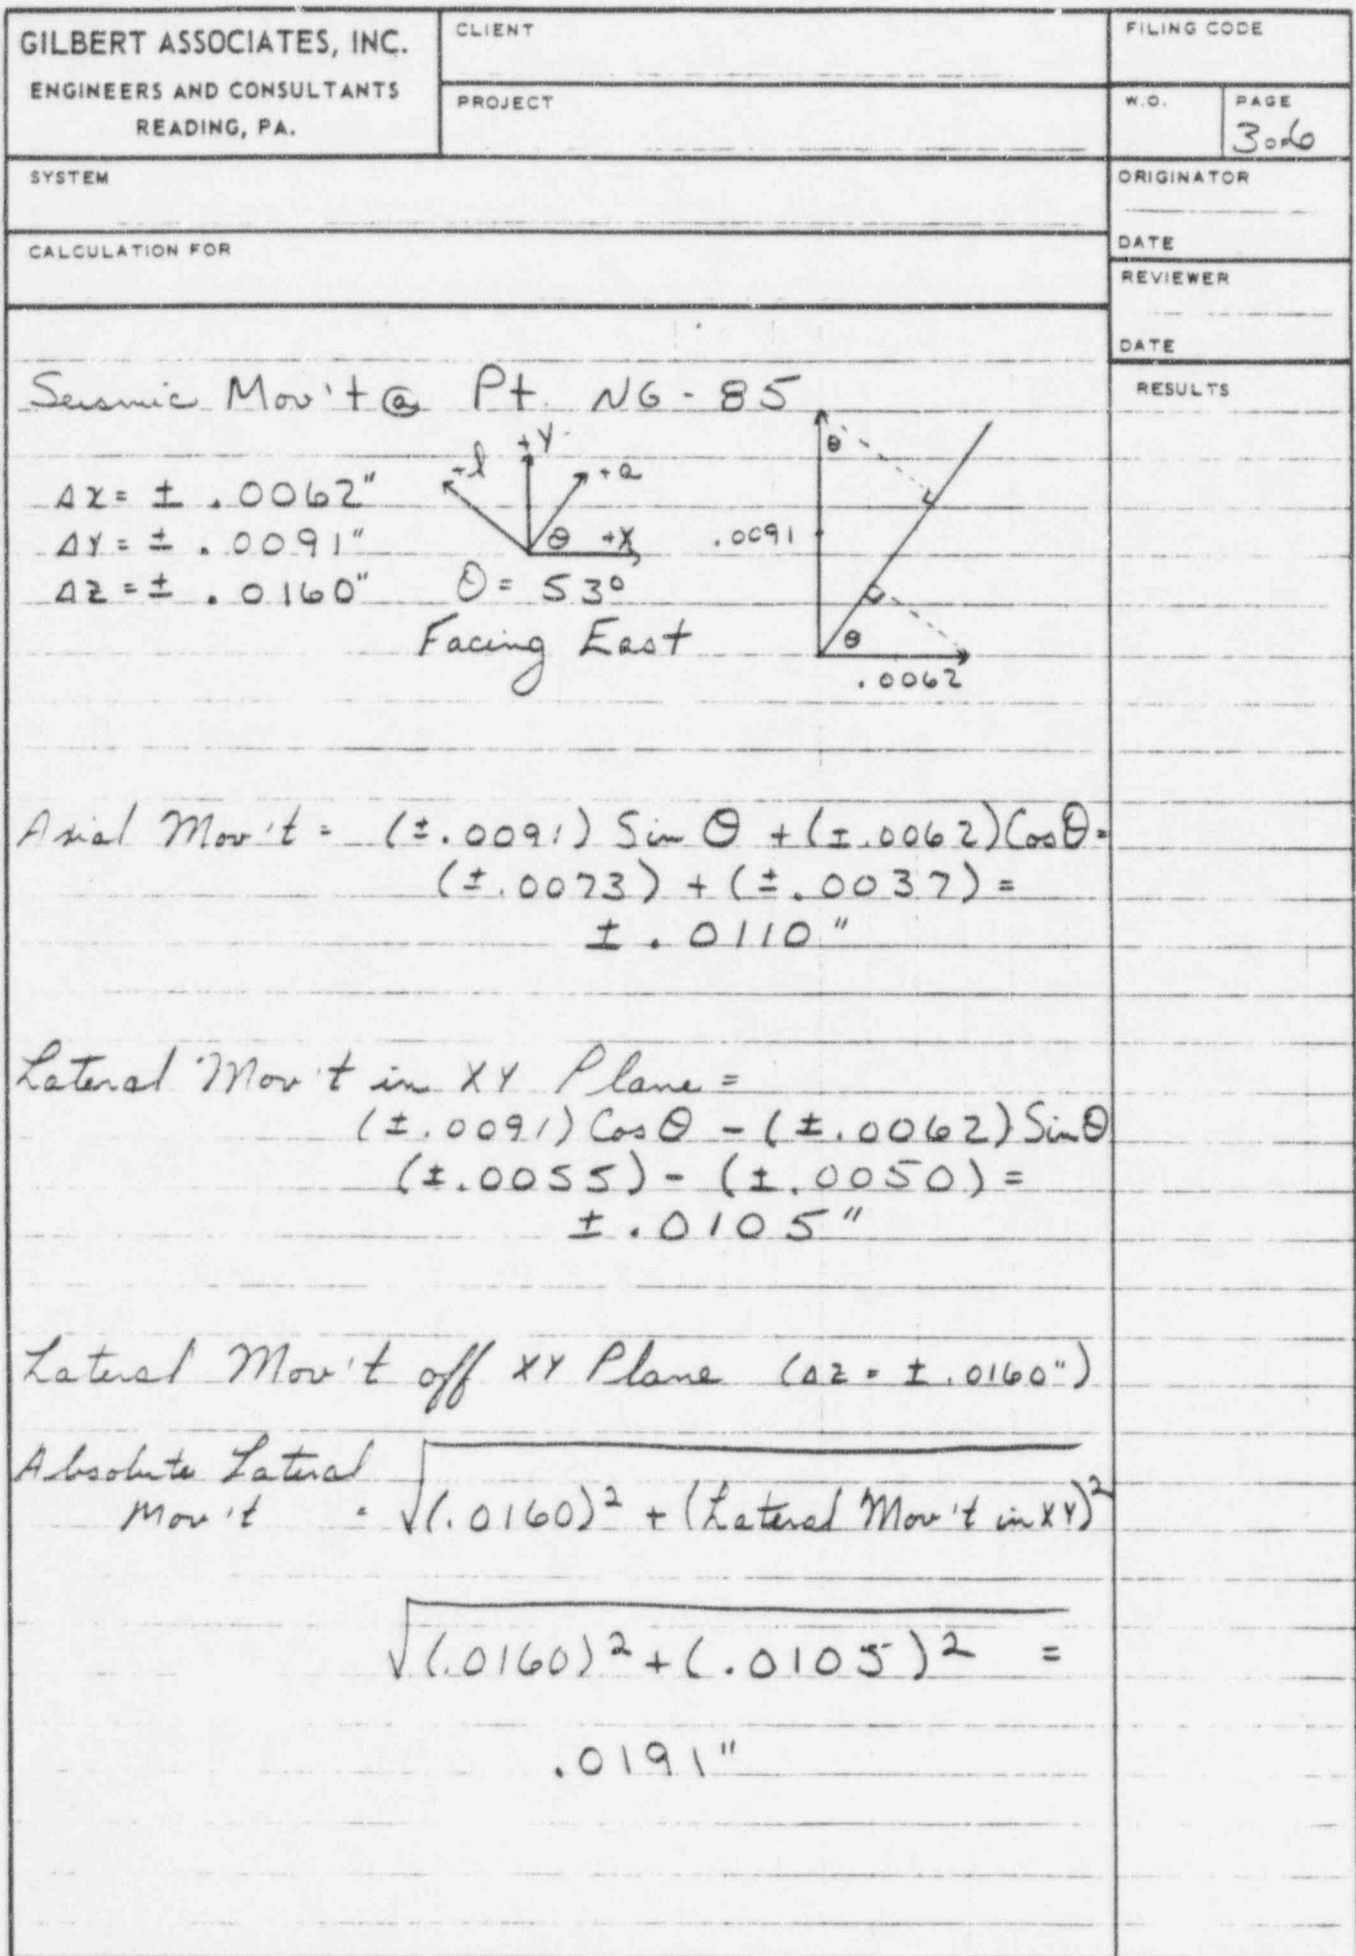 GILBERT ASSOCIATES, INC.
ENGINEERS AND CONSULTANTS
READING, PA.
CLIENT
PROJECT
FILING CODE
W.O.
PAGE
3 of 6
SYSTEM
ORIGINATOR
DATE
CALCULATION FOR
REVIEWER
DATE
RESULTS
Seismic Mov't @ Pt. NG-85
ΔX = ± .0062"
ΔY = ± .0091"
ΔZ = ± .0160"
+l
+Y
+a
θ +X
θ = 53°
Facing East
θ
.0091
θ
.0062
Axial Mov't = (±.0091) Sin θ + (±.0062) Cos θ =
(±.0073) + (±.0037) =
± .0110"
Lateral Mov't in XY Plane =
(±.0091) Cos θ - (±.0062) Sin θ
(±.0055) - (±.0050) =
± .0105"
Lateral Mov't off XY Plane (ΔZ = ±.0160")
Absolute Lateral
Mov't = √(.0160)² + (Lateral Mov't in XY)²
√(.0160)² + (.0105)² =
.0191"